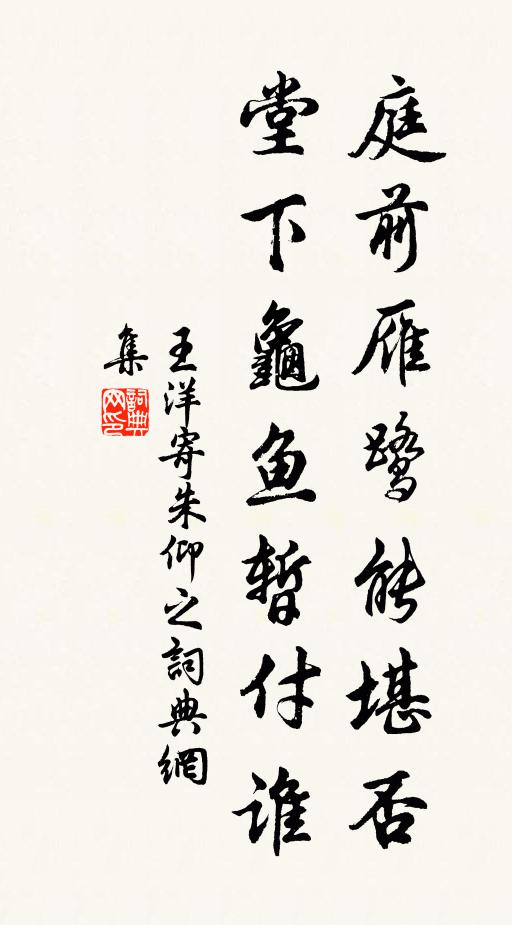 庭前雁鹭能堪否
堂下龜鱼暂付谁
王洋寄朱仰之詞典網
集
詞典
网印